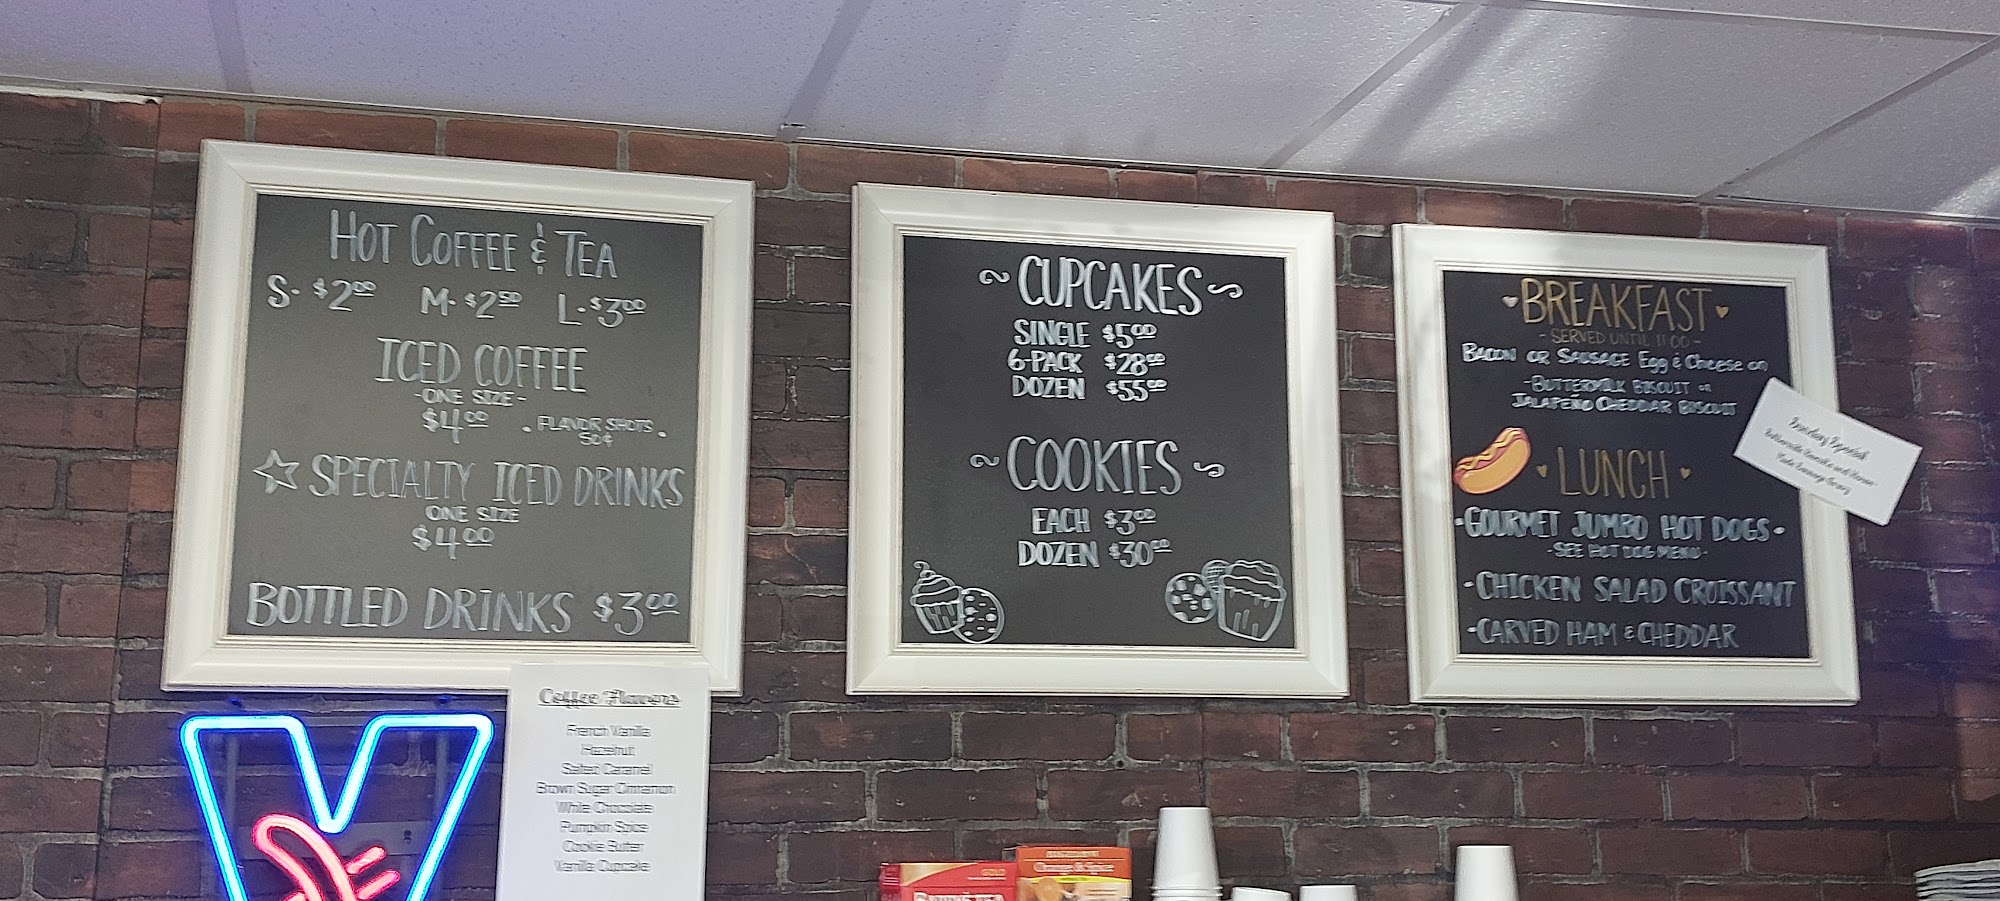 HOT COFFEE & TEA
S- $2.00 M- $2.50 L- $3.00
ICED COFFEE
-ONE SIZE-
$4.00 • FLAVOR SHOTS •
50¢
SPECIALTY ICED DRINKS
ONE SIZE
$4.00
BOTTLED DRINKS $3.00
Coffee Flavors
French Vanilla
Hazelnut
Salted Caramel
Brown Sugar Cinnamon
White Chocolate
Pumpkin Spice
Cookie Butter
Vanilla Cupcake
~ CUPCAKES ~
SINGLE $5.00
6-PACK $28.00
DOZEN $55.00
~ COOKIES ~
EACH $3.00
DOZEN $30.00
BREAKFAST
- SERVED UNTIL 11:00 -
BACON OR SAUSAGE Egg & Cheese on
-BUTTERMILK BISCUIT OR
JALAPEÑO CHEDDAR BISCUIT
LUNCH
•GOURMET JUMBO HOT DOGS•
-SEE HOT DOG MENU-
-CHICKEN SALAD CROISSANT
-CARVED HAM & CHEDDAR
Sunday Special
Buttermilk Biscuits and Home-
Made Sausage Gravy
GOLD
Orange & Spice